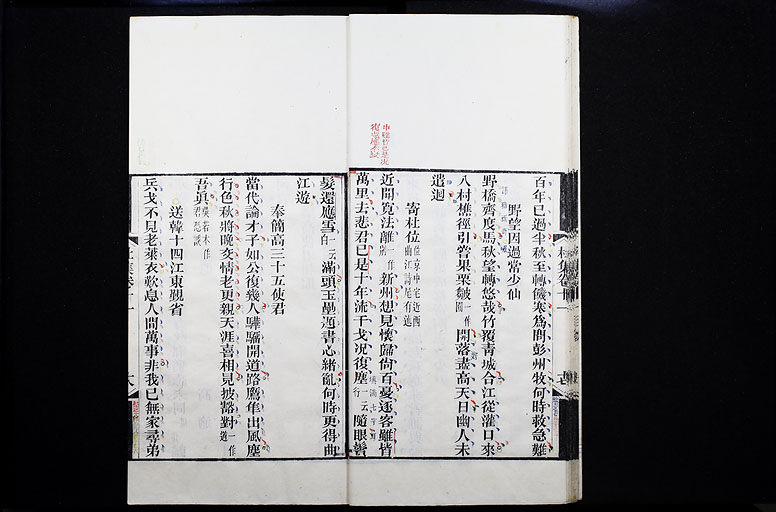 百年已過半秋至轉饑寒爲問彭州牧何時救急難
野望因過常少仙
野橋齊度馬秋望轉悠哉竹覆青城合江從灌口來
入村樵徑引嘗果栗皺一作園開落盡高天日幽人未
遣迴
寄杜位位京中宅近西曲江詩尾有述
近聞寬法離一作別新州想見懷歸尚百憂逐客雖皆
萬里去悲君已是十年流干戈況復塵一云行隨眼鬢
髮還應雪一云白滿頭玉壘題書心緒亂何時更得曲
江遊
奉簡高三十五使君
當代論才子如公復幾人驊騮開道路鷹隼出風塵
行色秋將晚交情老更親天涯喜相見披豁對一作道
吾眞吳若本作君忘談
送韓十四江東覲省
兵戈不見老萊衣歎息人間萬事非我已無家尋弟